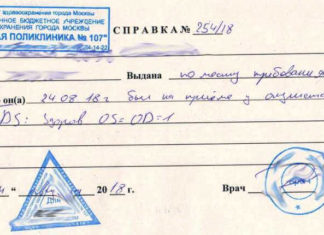 здравоохранения города Москвы
НОЕ БЮДЖЕТНОЕ УЧРЕЖДЕНИЕ
ОХРАНЕНИЯ ГОРОДА МОСКВЫ
АЯ ПОЛИКЛИНИКА № 107"
СПРАВКА № 254/18
Выдана по месту
он(а) 24 08 18 г был на приёме у
DS: Здоров OS=OD=1
" 2018 г. Врач